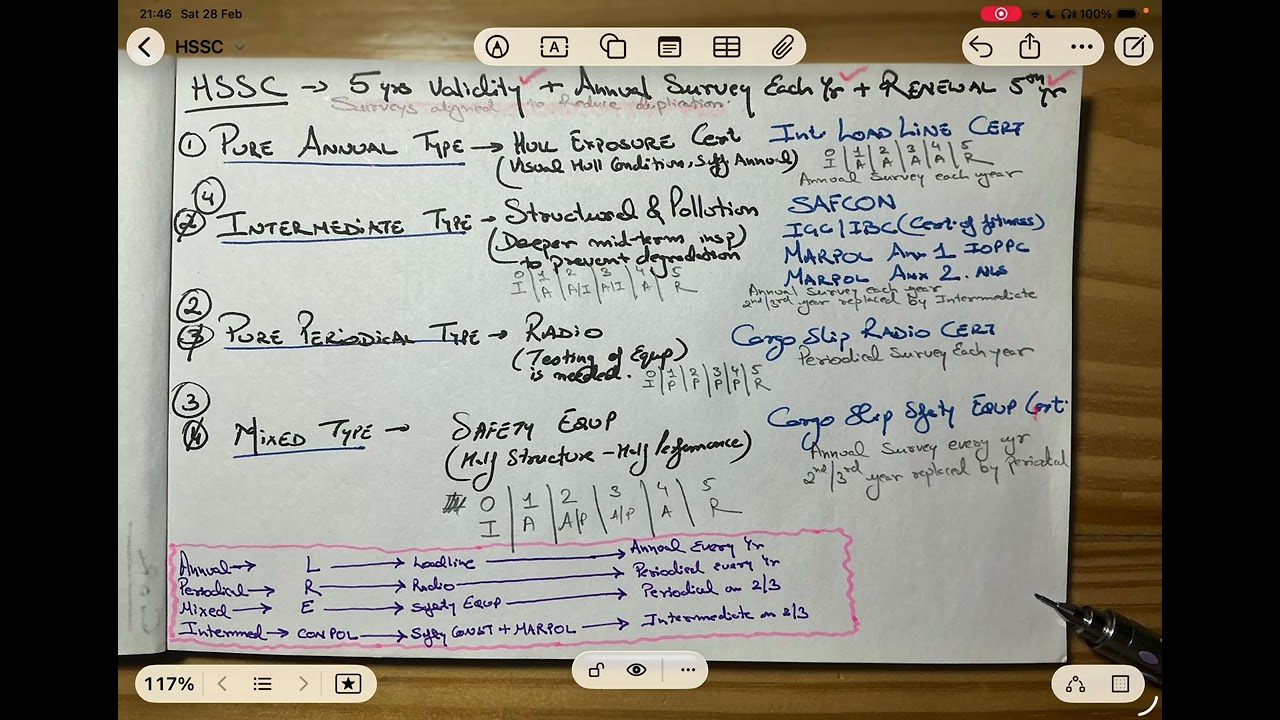 21:46 Sat 28 Feb
100%
HSSC
HSSC → 5 yrs Validity + Annual Survey Each Yr + RENEWAL 5th yr
Surveys aligned to reduce duplication.
① PURE ANNUAL TYPE → HULL EXPOSURE Cert Int. LOAD LINE CERT
(Visual Hull Condition, Suff Annual)
0 | 1 | 2 | 3 | 4 | 5
I | A | A | A | A | R
Annual Survey each year
④
2 INTERMEDIATE TYPE → Structural & Pollution SAFCON
(Deeper mid-term insp) IGC/IBC (Cert. of fitness)
to prevent degradation MARPOL Anx 1 IOPPC
MARPOL Anx 2. NLS
0 | 1 | 2 | 3 | 4 | 5
I | A | A/I | A/I | A | R
Annual Survey each year
2nd/3rd year replaced by Intermediate
②
3 PURE PERIODICAL TYPE → RADIO Cargo Ship RADIO CERT
(Testing of Equp) Periodical Survey Each year
is needed.
0 | 1 | 2 | 3 | 4 | 5
I | P | P | P | P | R
③
4 MIXED TYPE → SAFETY EQUP Cargo Ship Sfety EQUP Cert.
(Half Structure - Half Performance) Annual Survey every yr
2nd/3rd year replaced by periodical
0 | 1 | 2 | 3 | 4 | 5
I | A | A/P | A/P | A | R
Annual → L → Loadline → Annual Every Yr
Periodical → R → Radio → Periodical every Yr
Mixed → E → Sfety EQUP → Periodical on 2/3
Intermed → CONPOL → Sfty CONST + MARPOL → Intermediate on 2/3
117%